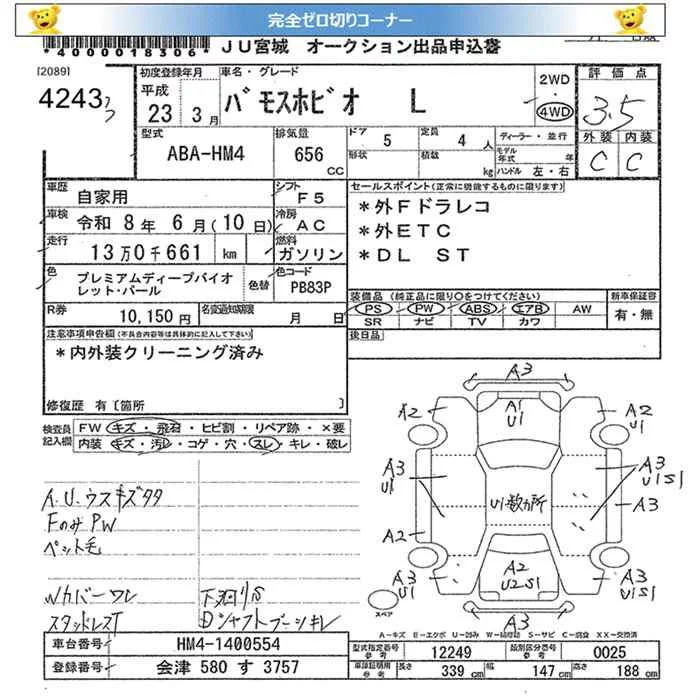 完全ゼロ切りコーナー
*4000018306*
JU宮城 オークション出品申込書
[2089]
4243
初度登録年月
平成
23 3月
車名・グレード
バモスホビオ L
2WD
4WD
評価点
3.5
外装 内装
C C
型式
ABA-HM4
排気量
656
CC
ドア 5
定員 4 人
形状
積載 kg
ディーラー・並行
モデル年式 年
ハンドル 左・右
車歴
自家用
シフト
F5
車検
令和 8年 6月(10日)
冷房
AC
走行
13万0千661 km
燃料
ガソリン
色
プレミアムディープバイオ
レット・パール
色替
色コード
PB83P
R券
10,150円
名変通知期限
月 日
セールスポイント(正常に機能するものに限ります)
*外Fドラレコ
*外ETC
*DL ST
装備品(純正品に限り○をつけてください)
PS PW ABS エアB AW
SR ナビ TV カワ
新車保証書
有・無
後日品
注意事項申告欄(不具合内容等は具体的に記入して下さい)
*内外装クリーニング済み
修復歴 有〔箇所 〕
検査員
記入欄
FW キズ・飛石・ヒビ割・リペア跡・×要
内装 キズ・汚レ・コゲ・穴・スレ・キレ・破レ
A.U.ウスキズタタ
FのみPW
ペット毛
Wカバーワレ
スタッドレスT
下廻リS
Dシャフトブーツキレ
A3
A2
A1
U1
A2
U1
A3
U1
A3
U1S1
U1数カ所
A3
A2
A2
U2S1
A3
U1
A3
U1S1
A3
スペア
A－キズ E－エクボ U－凹み W－補修跡 S－サビ C－腐食 XX－交換済
車台番号
HM4-1400554
登録番号
会津 580 す 3757
型式指定番号
参考
12249
類別区分番号
参考
0025
車庫証明用
参考
長さ 339 cm
幅 147 cm
高さ 188 cm